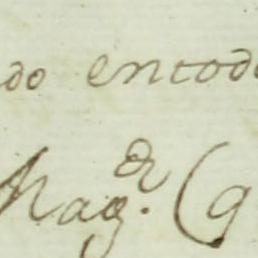 do entodo
Mag.^d (q